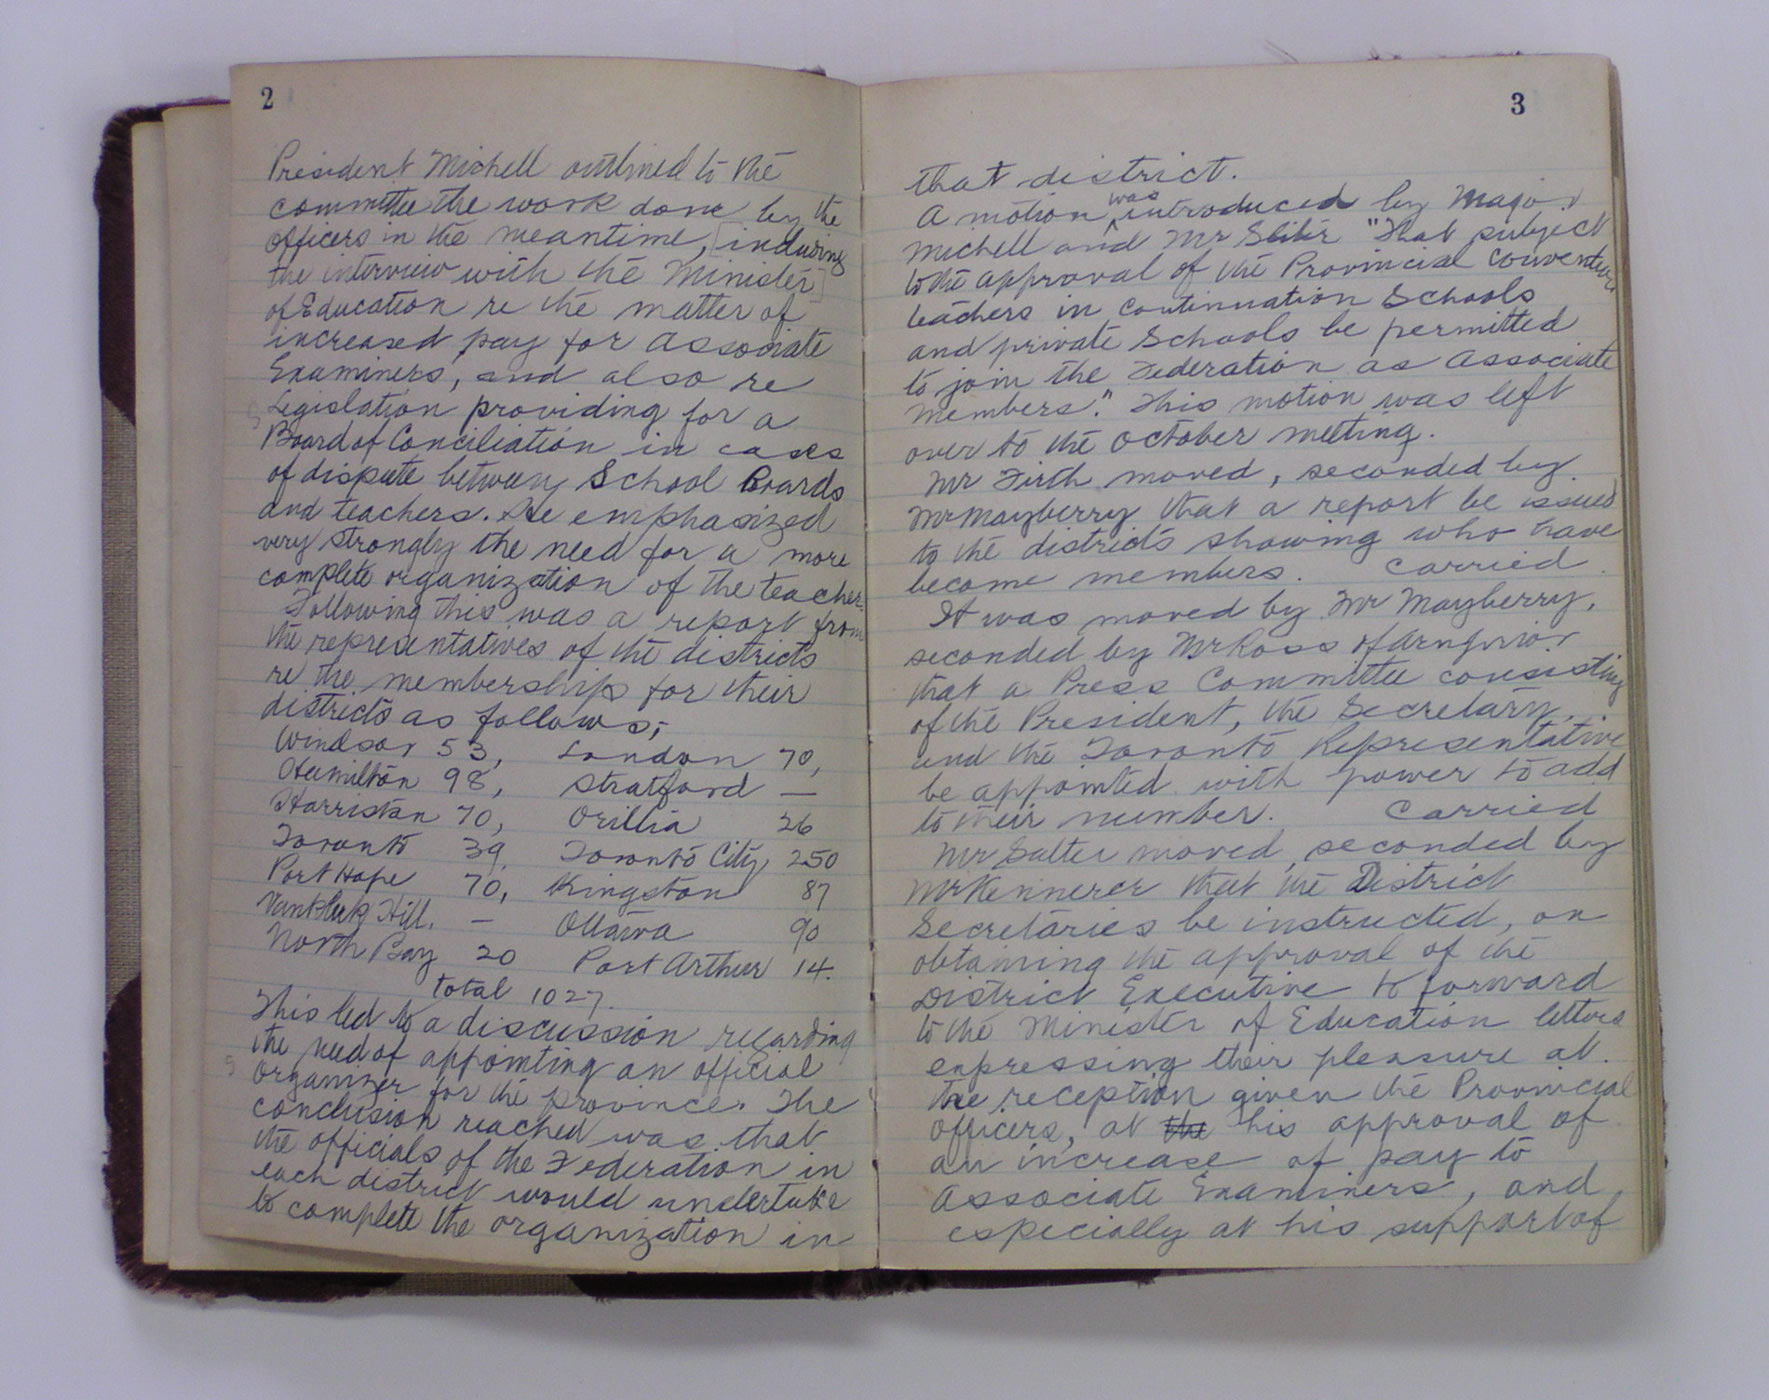 2
President Michell outlined to the
committee the work done by the
officers in the meantime, [including
the interview with the Minister]
of Education re the matter of
increased pay for Associate
Examiners, and also re
Legislation providing for a
Board of Conciliation in cases
of dispute between School Boards
and teachers. He emphasized
very strongly the need for a more
complete organization of the teachers.
Following this was a report from
the representatives of the districts
re the membership for their
districts as follows;
Windsor 53, London 70,
Hamilton 98, Stratford —
Harriston 70, Orillia 26
Toronto 39, Toronto City, 250
Port Hope 70, Kingston 87
Hill. — Ottawa 90
North Bay 20 Port Arthur 14.
total 1027.
This led to a discussion regarding
the need of appointing an official
organizer for the province. The
conclusion reached was that
the officials of the Federation in
each district would undertake
to complete the organization in
3
that district.
A motion was introduced by Major
Michell and Mr "That subject
to the approval of the Provincial convention
teachers in Continuation Schools
and private Schools be permitted
to join the Federation as Associate
members." This motion was left
over to the October meeting.
Mr Firth moved, seconded by
Mr Mayberry that a report be issued
to the districts showing who have
become members. Carried.
It was moved by Mr Mayberry,
seconded by Mr Ross of Arnprior
that a Press Committee consisting
of the President, the Secretary,
and the Toronto Representative
be appointed with power to add
to their number. Carried
Mr Salter moved, seconded by
Mr that the District
Secretaries be instructed, on
obtaining the approval of the
District Executive to forward
to the Minister of Education letters
expressing their pleasure at
the reception given the Provincial
officers, at the his approval of
an increase of pay to
Associate Examiners, and
especially at his support of